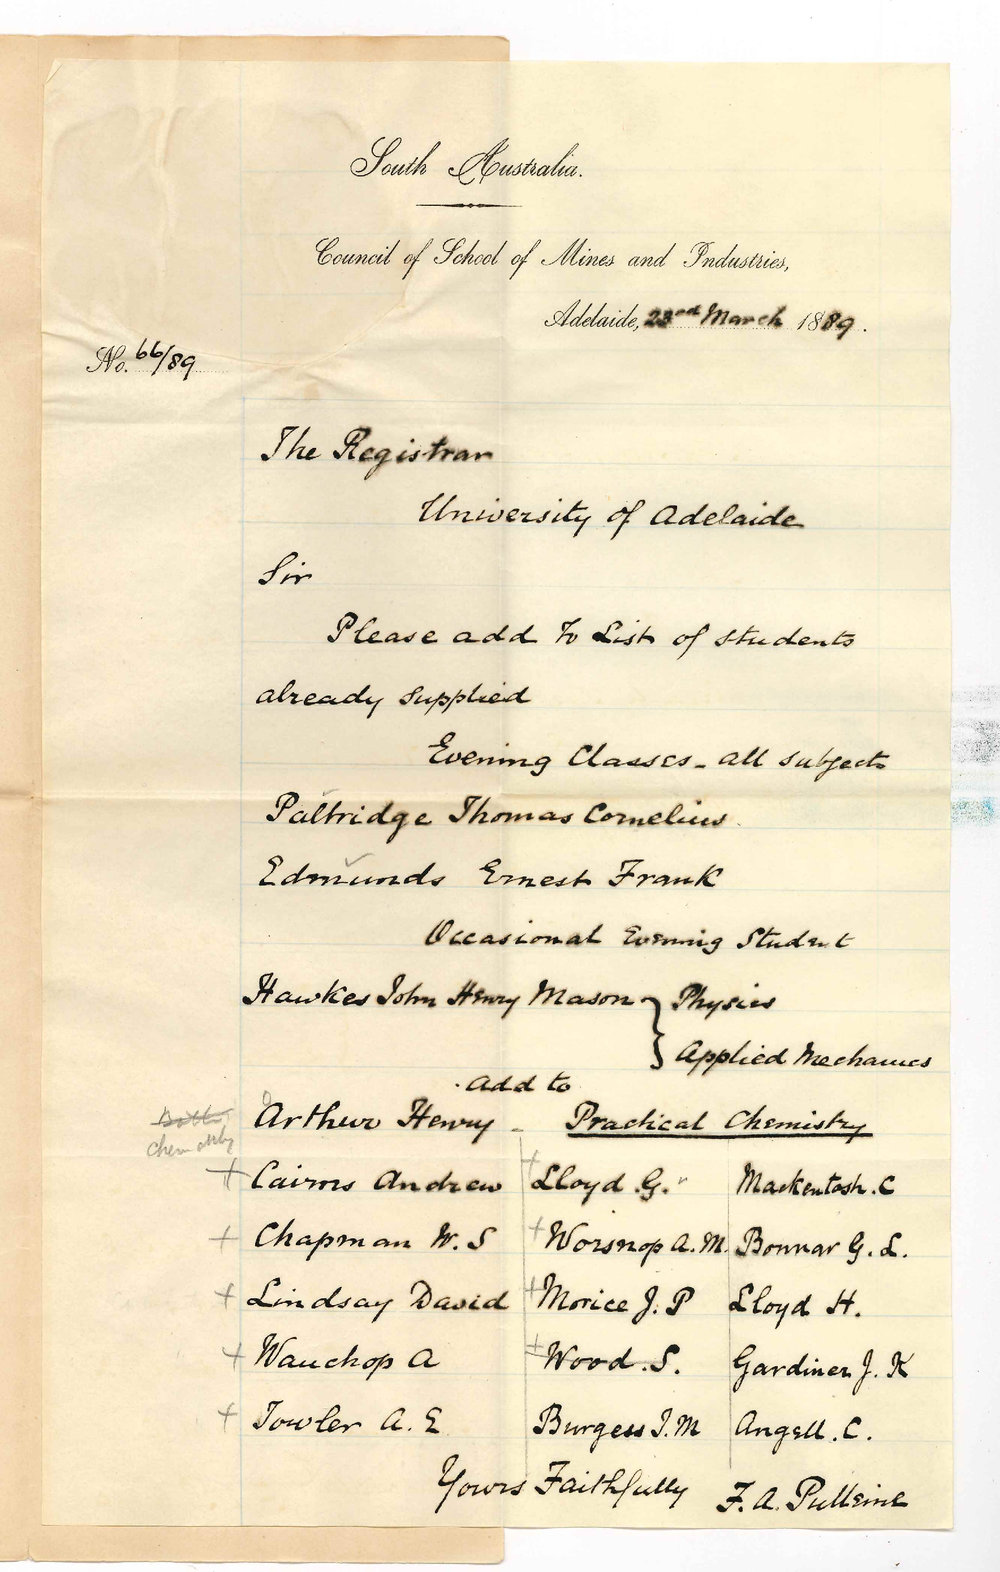 South Australia.
Council of School of Mines and Industries,
Adelaide, 23rd March 1889.
No. 66/89
The Registrar
University of Adelaide
Sir
Please add to List of students
already supplied
Evening Classes - all subjects
Paltridge Thomas Cornelius
Edmunds Ernest Frank
Occasional Evening Student
Hawkes John Henry Mason } Physics
Applied Mechanics
Add to
Arthur Henry - Practical Chemistry
Chem only
+ Cairns Andrew + Lloyd G. Mackentosh. C
+ Chapman W. S + Worsnop A. M. Bonnar G. L.
+ Lindsay David + Morice J. P Lloyd H.
+ Wauchop A + Wood. S. Gardiner J. K
+ Towler A. E Burgess I. M Angell. C.
Yours Faithfully F. A. Pulleine